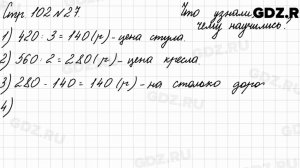 Стр. 102 №27. Что узнали,
чему научились?
GDZ.RU
1) 420 : 3 = 140 (р) - цена стула.
2) 560 : 2 = 280 (р) - цена кресла.
3) 280 - 140 = 140 (р) - на столько доро
4)